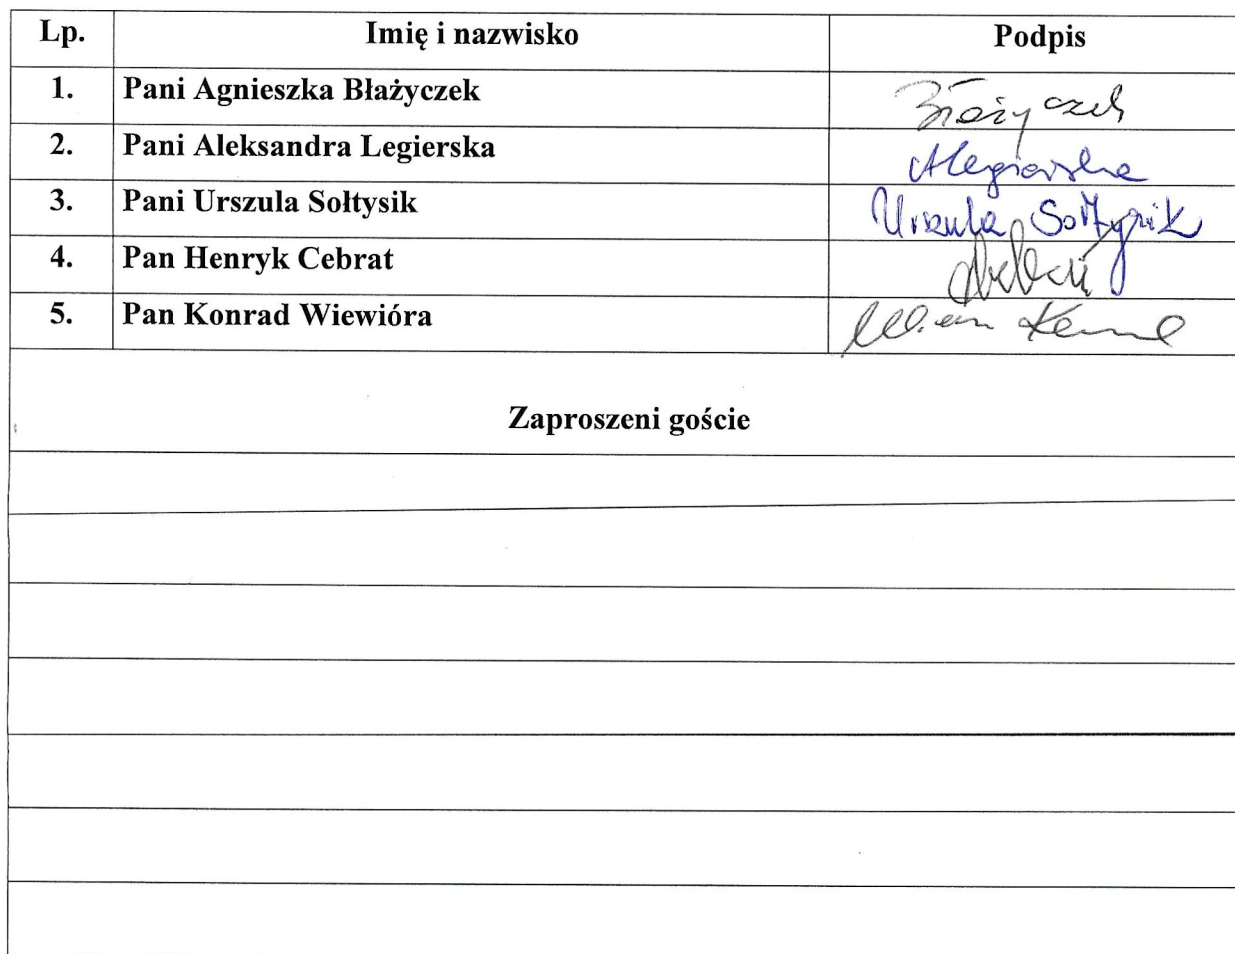 Lp. Imię i nazwisko Podpis
1. Pani Agnieszka Błażyczek Błażyczek
2. Pani Aleksandra Legierska ALegierska
3. Pani Urszula Sołtysik Urszula Sołtysik
4. Pan Henryk Cebrat
5. Pan Konrad Wiewióra
Zaproszeni goście